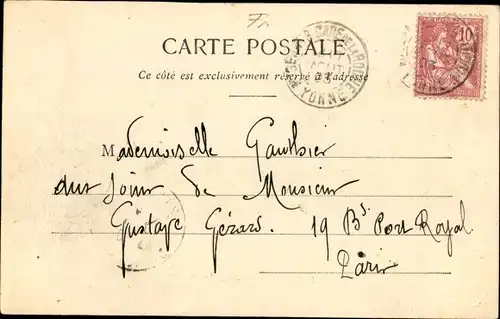 Fr
CARTE POSTALE
Ce côté est exclusivement réservé à l'adresse
AOUT
YONNE
10
Mademoiselle Gauthier
aux soins de Monsieur
Gustave Gérard. 19 Bd. Port Royal
Paris